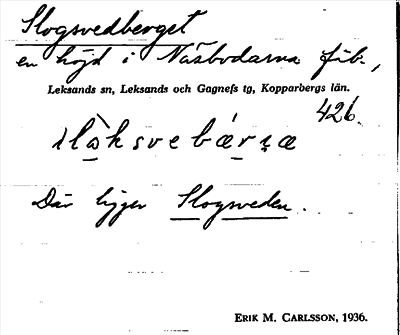 Slogsvedberget
en höjd i Näsbodarna fäb.,
Leksands sn, Leksands och Gagnefs tg, Kopparbergs län.
426.
slåksvebærɩæ
Där ligger Slogsveden.
ERIK M. CARLSSON, 1936.